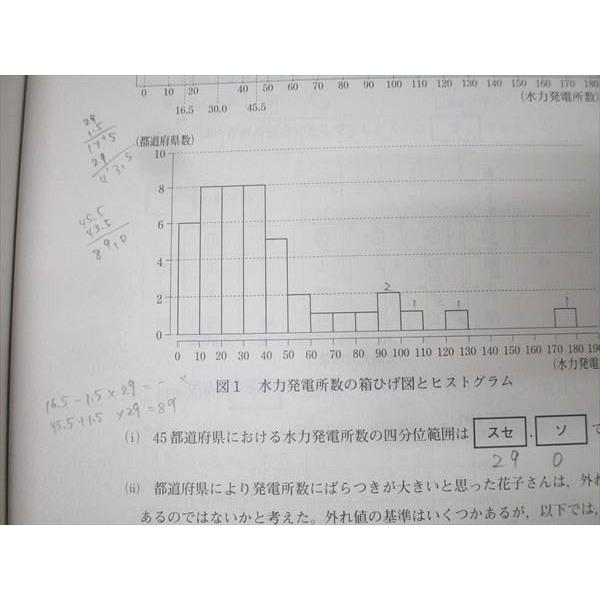 0 10 20 30 40 50 60 70 80 90 100 110 120 130 140 150 160 170 180
16.5 30.0 45.5
(水力発電所数)
29
1.5
145
29
43.5
45.5
43.5
89.0
(都道府県数)
10
8
6
4
2
0
2 1 1 1
0 10 20 30 40 50 60 70 80 90 100 110 120 130 140 150 160 170 180 190
(水力発電
図1 水力発電所数の箱ひげ図とヒストグラム
16.5-1.5×29=- ×
45.5+1.5×29=89
(i) 45都道府県における水力発電所数の四分位範囲は スセ . ソ で
29 0
(ii) 都道府県により発電所数にばらつきが大きいと思った花子さんは、外れ
あるのではないかと考えた。外れ値の基準はいくつかあるが、以下では、